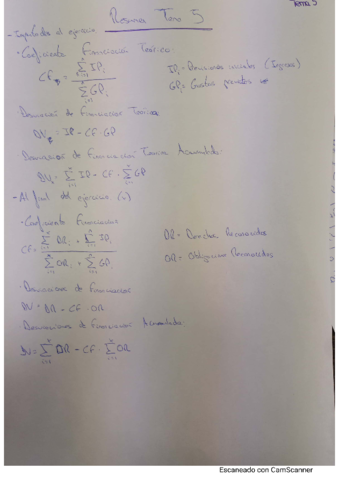 Tema 5
Resumen Tema 5
- el ejercicio
- Coeficiente Financiación Teórico:
CF = Σ IP_i / Σ GP_i
IP_i = (Ingresos)
GP_i = Gastos previstos
Desviación de Financiación Teórica
DV = IP - CF · GP
Desviación de Financiación Teórica Acumulada
DV = Σ IP - CF · Σ GP
- Al final del ejercicio (n)
- Coeficiente Financiación
CF = Σ DR_i + Σ IP_i / Σ OR_i + Σ GP_i
DR = Derechos Reconocidos
OR = Obligaciones Reconocidas
- Desviaciones de Financiación
DV = DR - CF · OR
Desviaciones de Financiación Acumulada
DV = Σ DR - CF · Σ OR
Escaneado con CamScanner